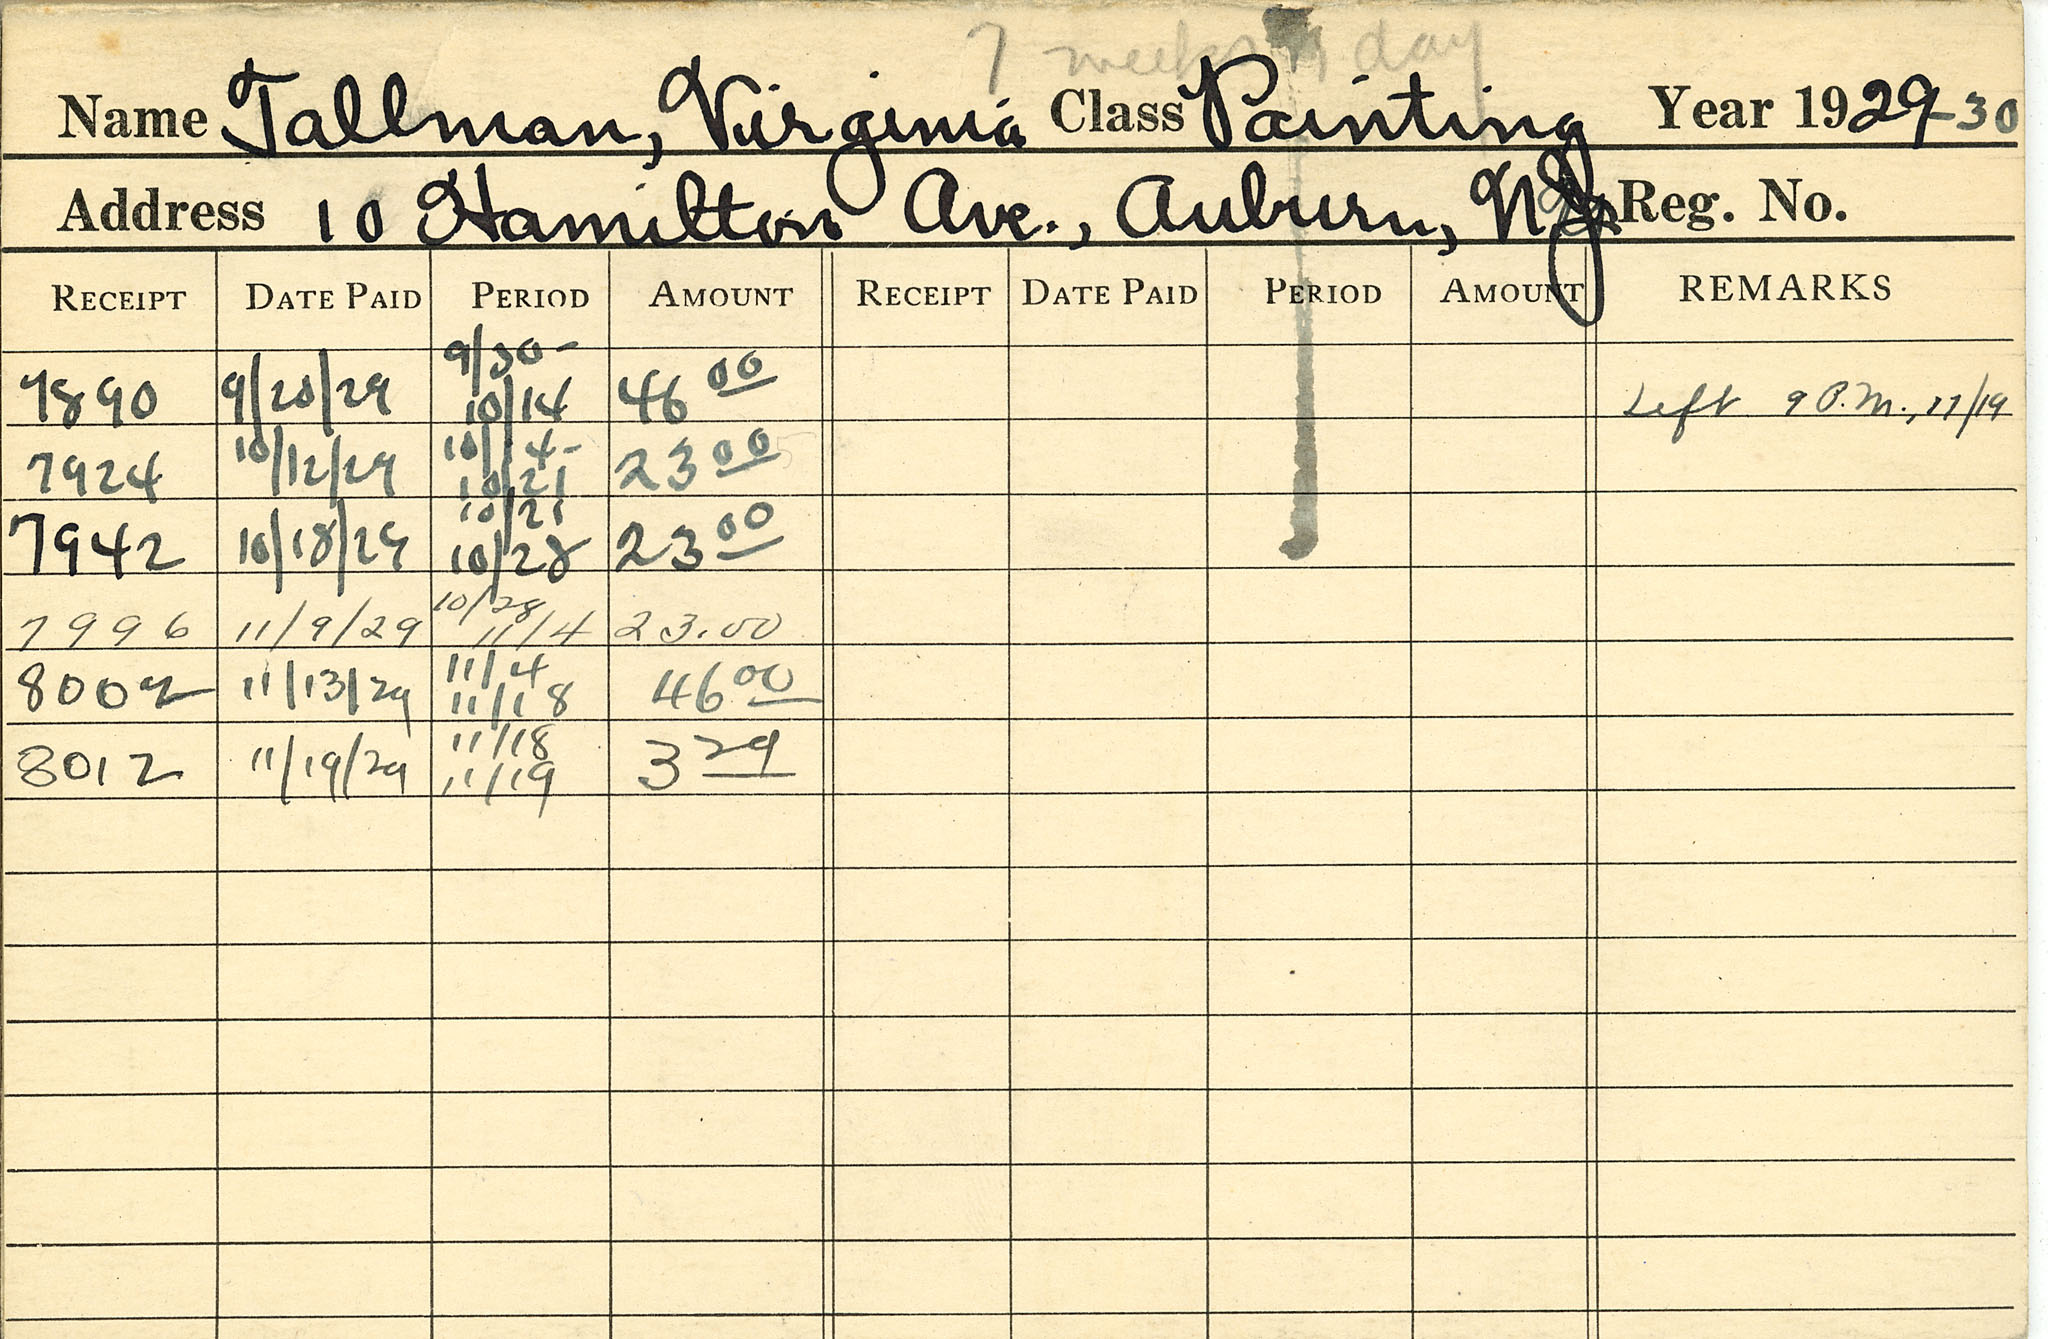 7 weeks 1 day
Name Tallman, Virginia Class Painting Year 1929-30
Address 10 Hamilton Ave., Auburn, N.Y. Reg. No.
RECEIPT DATE PAID PERIOD AMOUNT RECEIPT DATE PAID PERIOD AMOUNT REMARKS
9/30-
7890 9/20/29 10/14 46 00 Left 9 P.M., 11/19
10/14-
7924 10/12/29 10/21 23 00
10/21
7942 10/18/29 10/28 23 00
10/28
7996 11/9/29 11/4 23.00
11/4
8002 11/13/29 11/18 46 00
11/18
8012 11/19/29 11/19 3 29